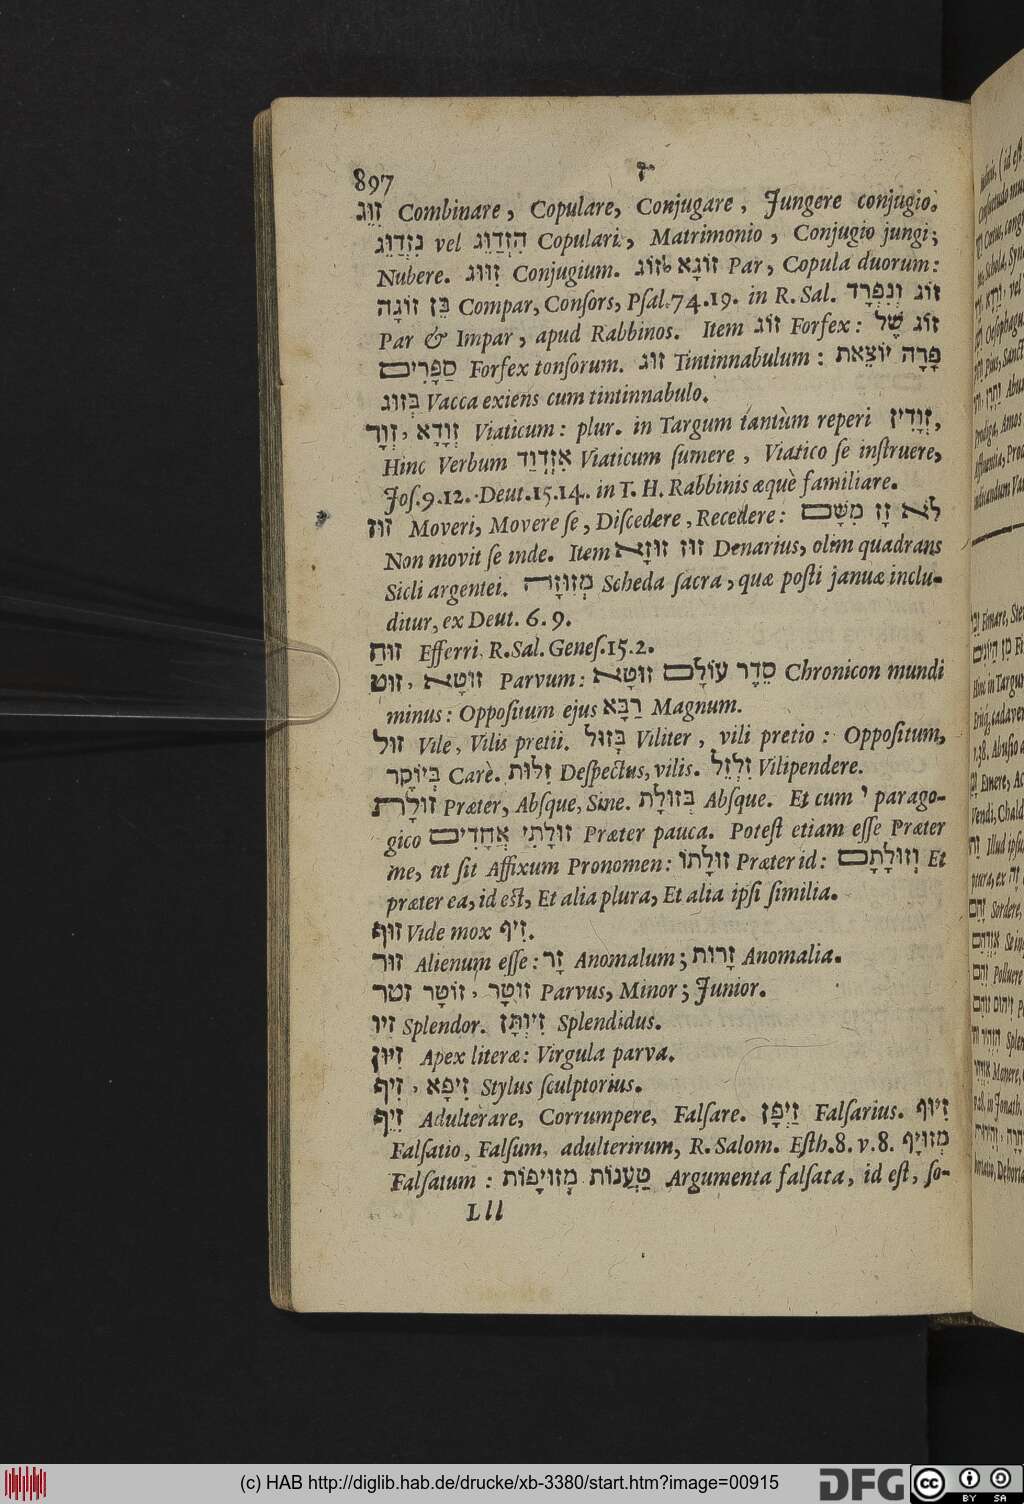 897 ז
זִוֵּג Combinare, Copulare, Conjugare, Jungere conjugio.
נִזְדַּוֵּג vel הִזְדַּוֵּג Copulari, Matrimonio, Conjugio jungi;
Nubere. זִוּוּג Conjugium. זוּג & זוּגָא Par, Copula duorum:
בֵּן זוּגָה Compar, Conſors, Pſal.74.19. in R. Sal. זוֹג וְנִפְרָד
Par & Impar, apud Rabbinos. Item זוֹג Forfex: זוֹג שֶׁל
סַפָּרִים Forfex tonſorum. זוג Tintinnabulum: פָּרָה יוֹצֵאת
בְּזוּג Vacca exiens cum tintinnabulo.
זְוָד, זְוָדָא Viaticum: plur. in Targum tantùm reperi זְוָדִין,
Hinc Verbum אִזְדְוַד Viaticum ſumere, Viatico ſe inſtruere,
Joſ.9.12. Deut.15.14. in T. H. Rabbinis æquè familiare.
זוּז Moveri, Movere ſe, Diſcedere, Recedere: לֹא זָז מִשָּׁם
Non movit ſe inde. Item זוּז זוּזָא Denarius, olim quadrans
Sicli argentei. מְזוּזָה Scheda ſacra, quæ poſti januæ inclu-
ditur, ex Deut. 6.9.
זוּחַ Efferri. R. Sal. Geneſ.15.2.
זוּט, זוּטָא Parvum: סֵדֶר עוֹלָם זוּטָא Chronicon mundi
minus: Oppoſitum ejus רַבָּא Magnum.
זוּל Vile, Vilis pretii. בְּזוּל Viliter, vili pretio: Oppoſitum,
בְּיוֹקֶר Carè. זִלוּת Deſpectus, vilis. זִלְזֵל Vilipendere.
זוּלָת Præter, Abſque, Sine. בְּזוּלָת Abſque. Et cum י parago-
gico זוּלָתִי אֲחָדִים Præter pauca. Poteſt etiam eſſe Præter
me, ut ſit Affixum Pronomen: זוּלָתוֹ Præter id: וְזוּלָתָם Et
præter ea, id eſt, Et alia plura, Et alia ipſi ſimilia.
זוּף Vide mox זִיף.
זוּר Alienum eſſe: זָר Anomalum; זָרוּת Anomalia.
זטר זוֹטָר, זוּטָר Parvus, Minor; Junior.
זִיו Splendor. זִיוְתָּן Splendidus.
זִיּוּן Apex literæ: Virgula parva.
זִיף, זִיפָא Stylus ſculptorius.
זִיֵּף Adulterare, Corrumpere, Falſare. זַיְּפָן Falſarius. זִיּוּף
Falſatio, Falſum, adulterirum, R. Salom. Eſth.8. v.8. מְזוּיָּף
Falſatum: טַעֲנוֹת מְזוּיָּפוֹת Argumenta falſata, id eſt, ſo-
Lll
(c) HAB http://diglib.hab.de/drucke/xb-3380/start.htm?image=00915 DFG cc BY SA